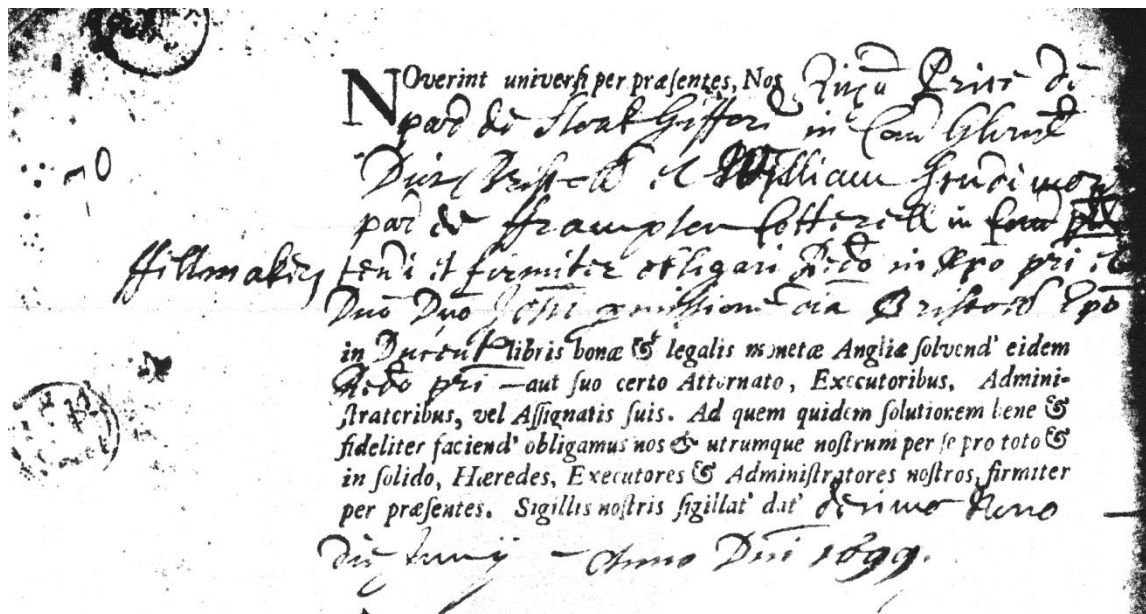 NOverint universi per præsentes, Nos Price de
par de Stoak Gifford in Com Glouc
Dioc Bristoll et William
par de Frampton Cotterell in Com
ffeltmaker teneri et firmiter obligari Redo in Xpo pri et
Dno Dno permissione Bristoll Epo
in Ducent libris bonæ & legalis monetæ Angliæ solvend' eidem
Redo pri aut suo certo Attornato, Executoribus, Admini-
stratoribus, vel Assignatis suis. Ad quem quidem solutionem bene &
fideliter faciend' obligamus nos & utrumque nostrum per se pro toto &
in solido, Hæredes, Executores & Administratores nostros, firmiter
per præsentes. Sigillis nostris sigillat' dat' decimo Nono
die Junij Anno Dni 1699.